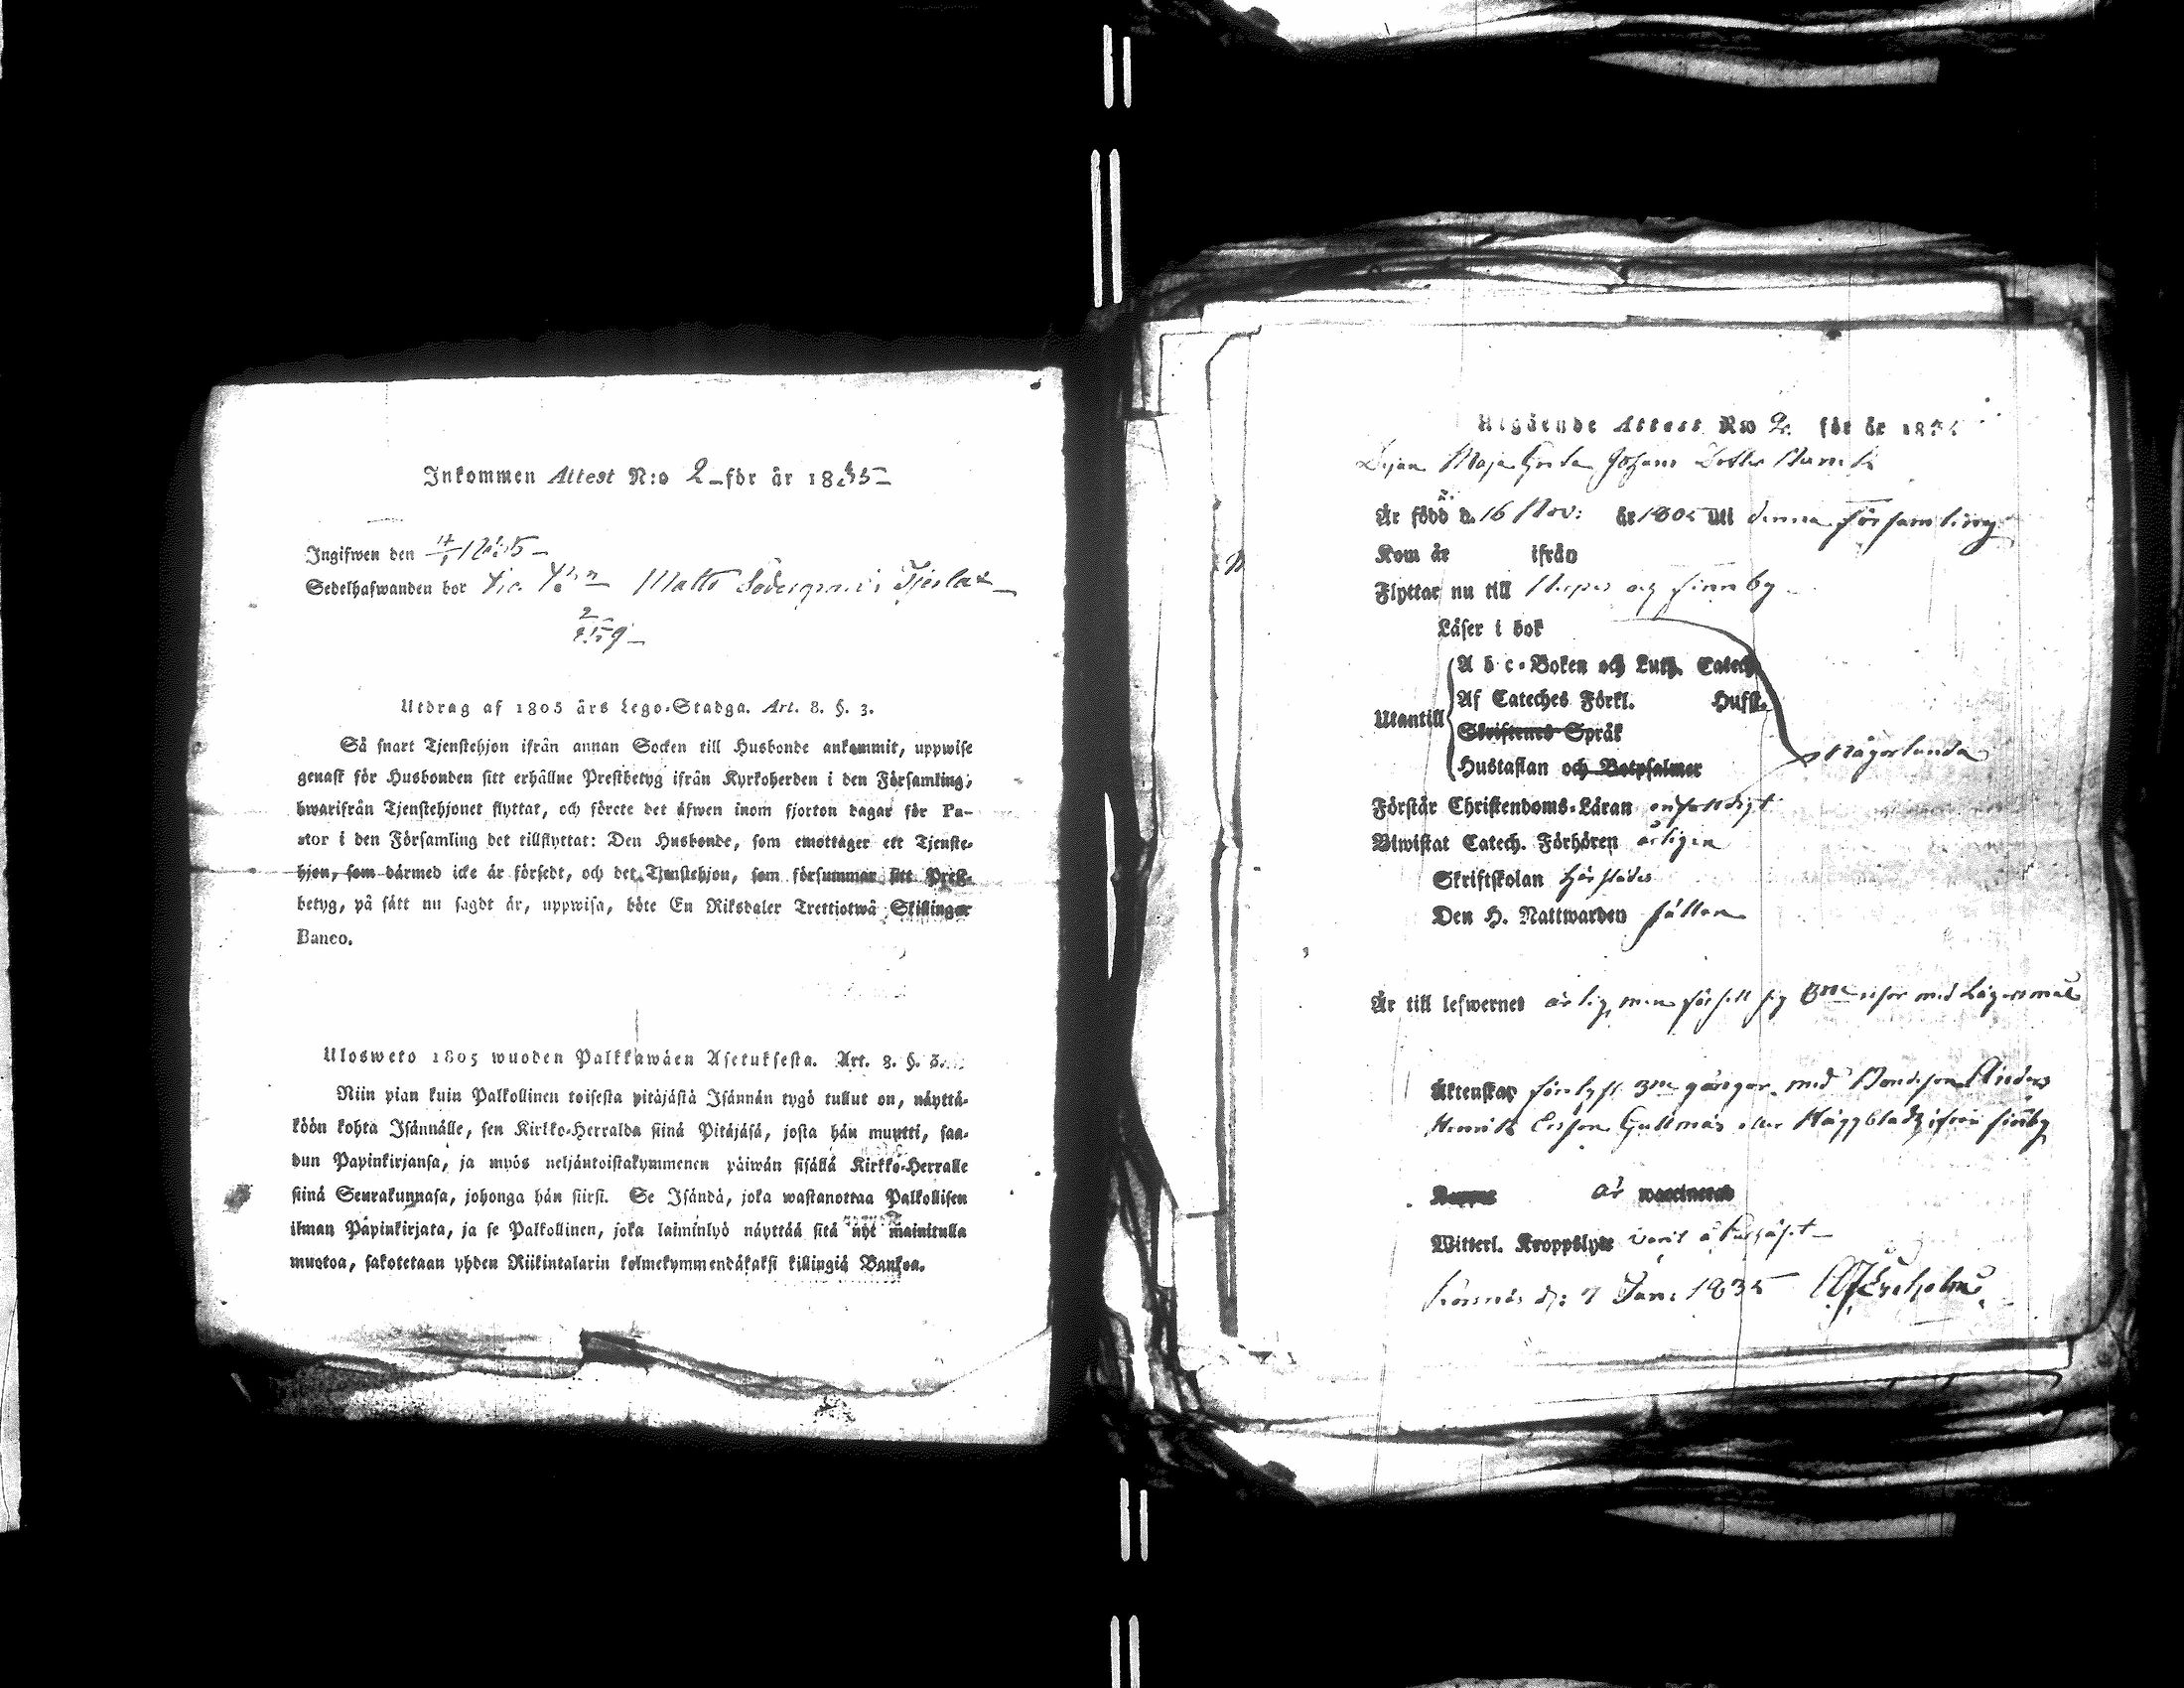 Inkommen Attest N:o 2 för år 1835
Ingifwen den 17/1 1835
Sedelhafwanden bor Matts Södergran i Tjerlax
Utdrag af 1805 års Lego-Stadga. Art. 8. §. 3.
Så snart Tjenstehjon ifrån annan Socken till Husbonde ankommit, uppwise
genast för Husbonden sitt erhållne Prestbetyg ifrån Kyrkoherden i den Församling,
hwarifrån Tjenstehjonet flyttat, och förete det äfwen inom fjorton dagar för Pa-
stor i den Församling det tillflyttat: Den Husbonde, som emottager ett Tjenste-
hjon, som därmed icke är försedt, och det Tjenstehjon, som försummar sitt Prest-
betyg, på sätt nu sagdt är, uppwisa, böte En Riksdaler Trettiotwå Skillingar
Banco.
Ulosweto 1805 wuoden Palkkawäen Asetuksesta. Art. 8. §. 3.
Niin pian kuin Palkollinen toisesta pitäjästä Isännän tygö tullut on, näyttä-
köön kohta Isännälle, sen Kirkko-Herralda siinä Pitäjäsä, josta hän muutti, saa-
dun Papinkirjansa, ja myös neljäntoistakymmenen päiwän sisällä Kirkko-Herralle
siinä Seurakunnasa, johonga hän siirsi. Se Isändä, joka wastanottaa Palkollisen
ilman Papinkirjata, ja se Palkollinen, joka laiminlyö näyttää sitä nyt mainitulla
muotoa, sakotetaan yhden Riikintalarin kolmekymmendäkaksi killingiä Bankoa.
Utgående Attest No 2 för år 1835
Maja Greta Johans Dotter
Är född d. 16 Nov: år 1805 uti denna församling
Kom år ifrån
Flyttar nu till och Finnby
Läser i bok
A b c-Boken och Luth. Catech.
Af Cateches Förkl. Husst.
Utantill
Skriftenes Språk
Hustaflan och Botpsalmer
någorlunda
Förstår Christendoms-Läran enfaldigt
Biwistat Catech. Förhören årligen
Skriftskolan härstädes
Den H. Nattwarden sällan
Är till lefwernet ärlig, men försett sig med Lägersmål
Äktenskap förelyst 3ne gångor med Bondeson Anders
Henrik Ersson Gullmäs eller Häggblad ifrån Finnby
Koppor är waccinerad
Witterl. Kroppslyte
d. 7 Jan: 1835